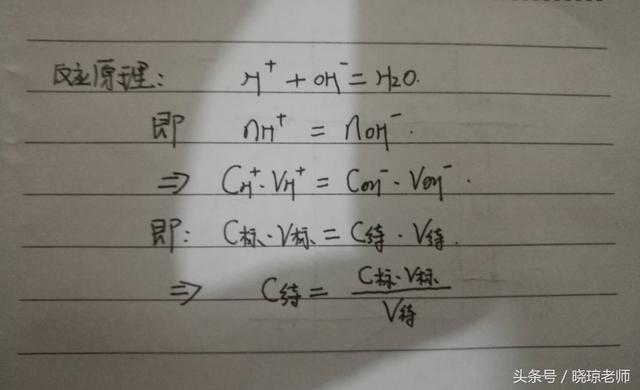 反应原理: H⁺ + OH⁻ = H₂O.
即 nH⁺ = nOH⁻.
⇒ CH⁺·VH⁺ = COH⁻·VOH⁻.
即: C标·V标 = C待·V待.
⇒ C待 = C标·V标 / V待
头条号 / 晓琼老师